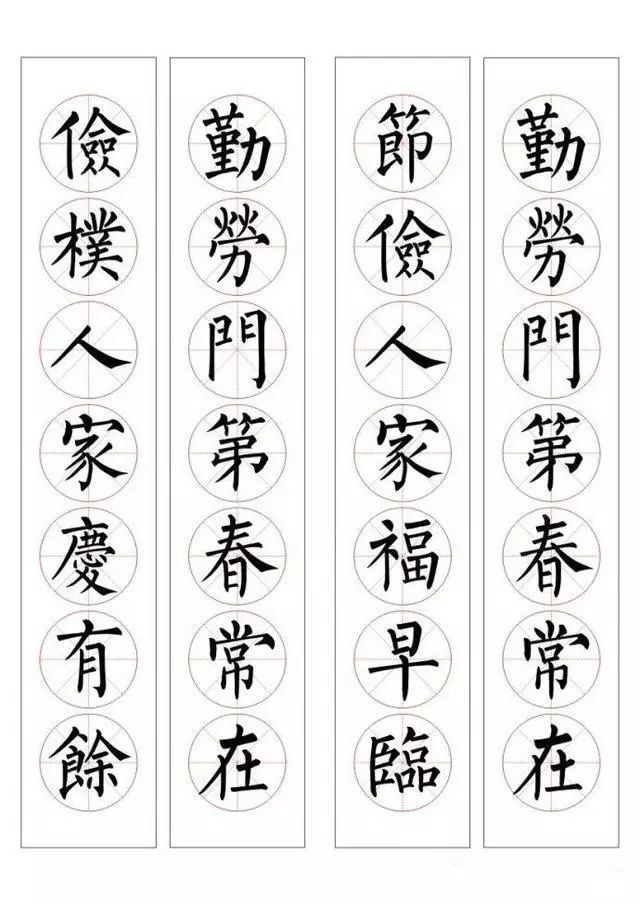 勤勞門第春常在
節儉人家福早臨
勤勞門第春常在
儉樸人家慶有餘